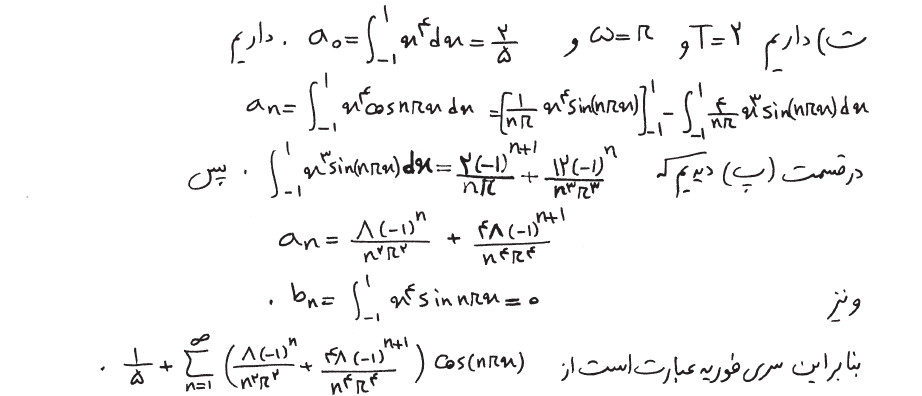 ت) داریم T=۲ و ω=π و a₀=∫₋₁¹ x⁴dx=۲/۵ . داریم
aₙ=∫₋₁¹ x⁴cosnπx dx =[1/nπ x⁴sin(nπx)]₋₁¹ - ∫₋₁¹ ۴/nπ x³sin(nπx)dx
در قسمت (پ) دیدیم که ∫₋₁¹ x³sin(nπx)dx=۲(-1)ⁿ⁺¹/nπ + ۱۲(-1)ⁿ/n³π³ . پس
aₙ = ۸(-1)ⁿ/n²π² + ۴۸(-1)ⁿ⁺¹/n⁴π⁴
و نیز bₙ=∫₋₁¹ x⁴sin nπx=۰ .
بنابراین سری فوریه عبارت است از 1/۵ + ∑ₙ₌₁^∞ (۸(-1)ⁿ/n²π² + ۴۸(-1)ⁿ⁺¹/n⁴π⁴) cos(nπx) .